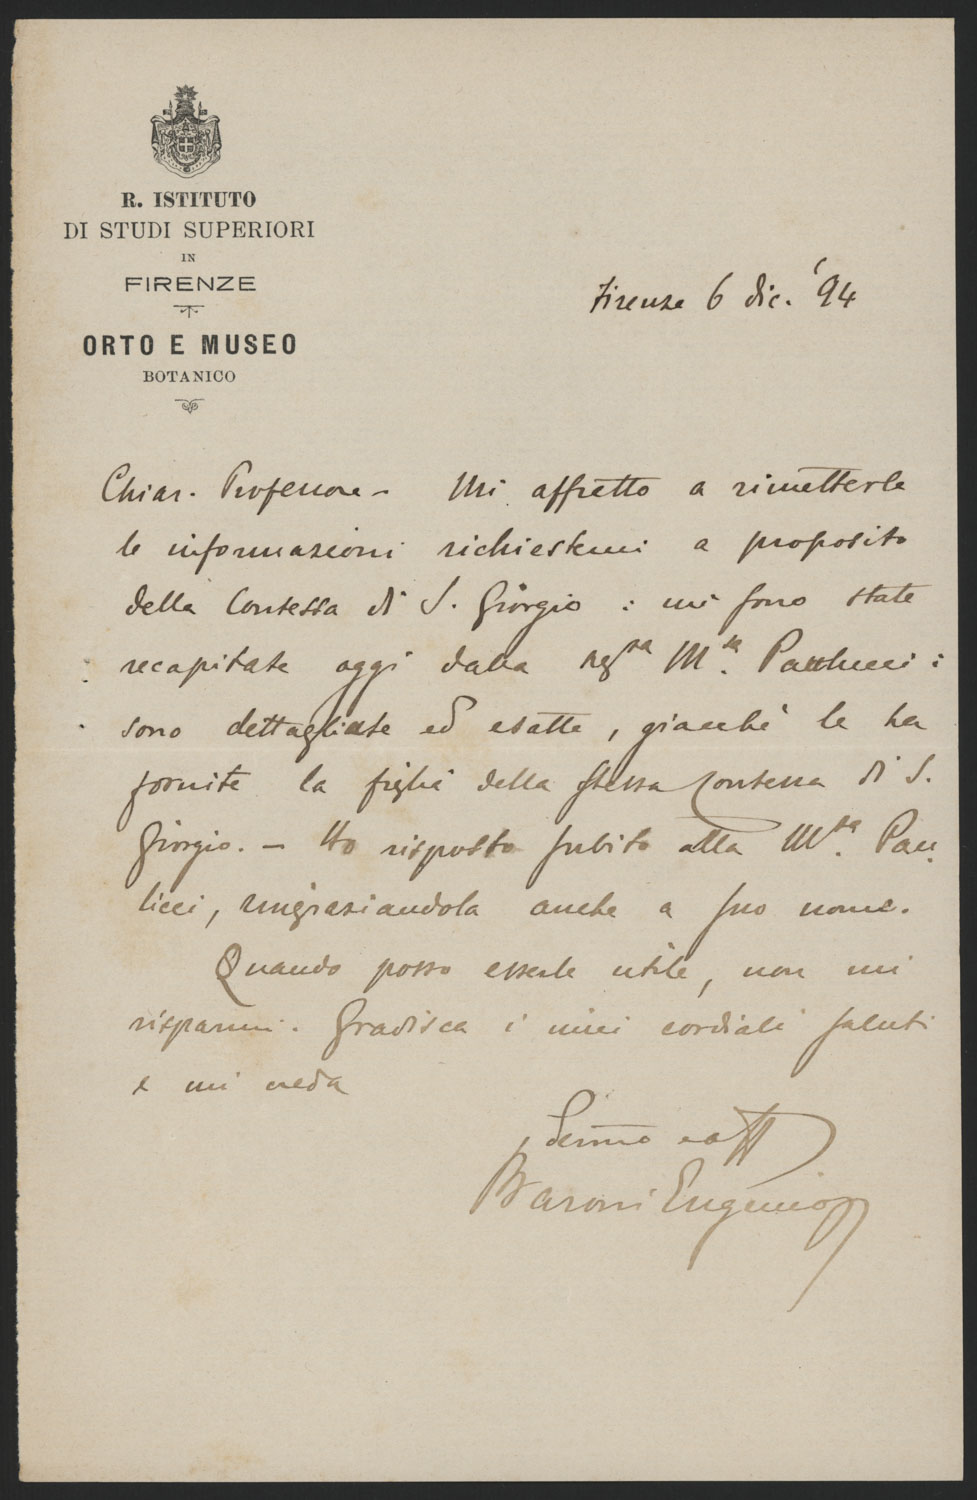 R. ISTITUTO
DI STUDI SUPERIORI
IN
FIRENZE
ORTO E MUSEO
BOTANICO
Firenze 6 dic. '94
Chiar. Professore - Mi affretto a rimetterle
le informazioni richiestemi a proposito
della Contessa di S. Giorgio : mi sono state
recapitate oggi dalla M.sa Paulucci :
sono dettagliate ed esatte, giacchè le ha
fornite la figlia della stessa Contessa di S.
Giorgio. - Ho risposto subito alla M.sa Pau
lucci, ringraziandola anche a suo nome.
Quando posso esserle utile, non mi
risparmi. Gradisca i miei cordiali saluti
e mi creda
aff
Baroni Eugenio